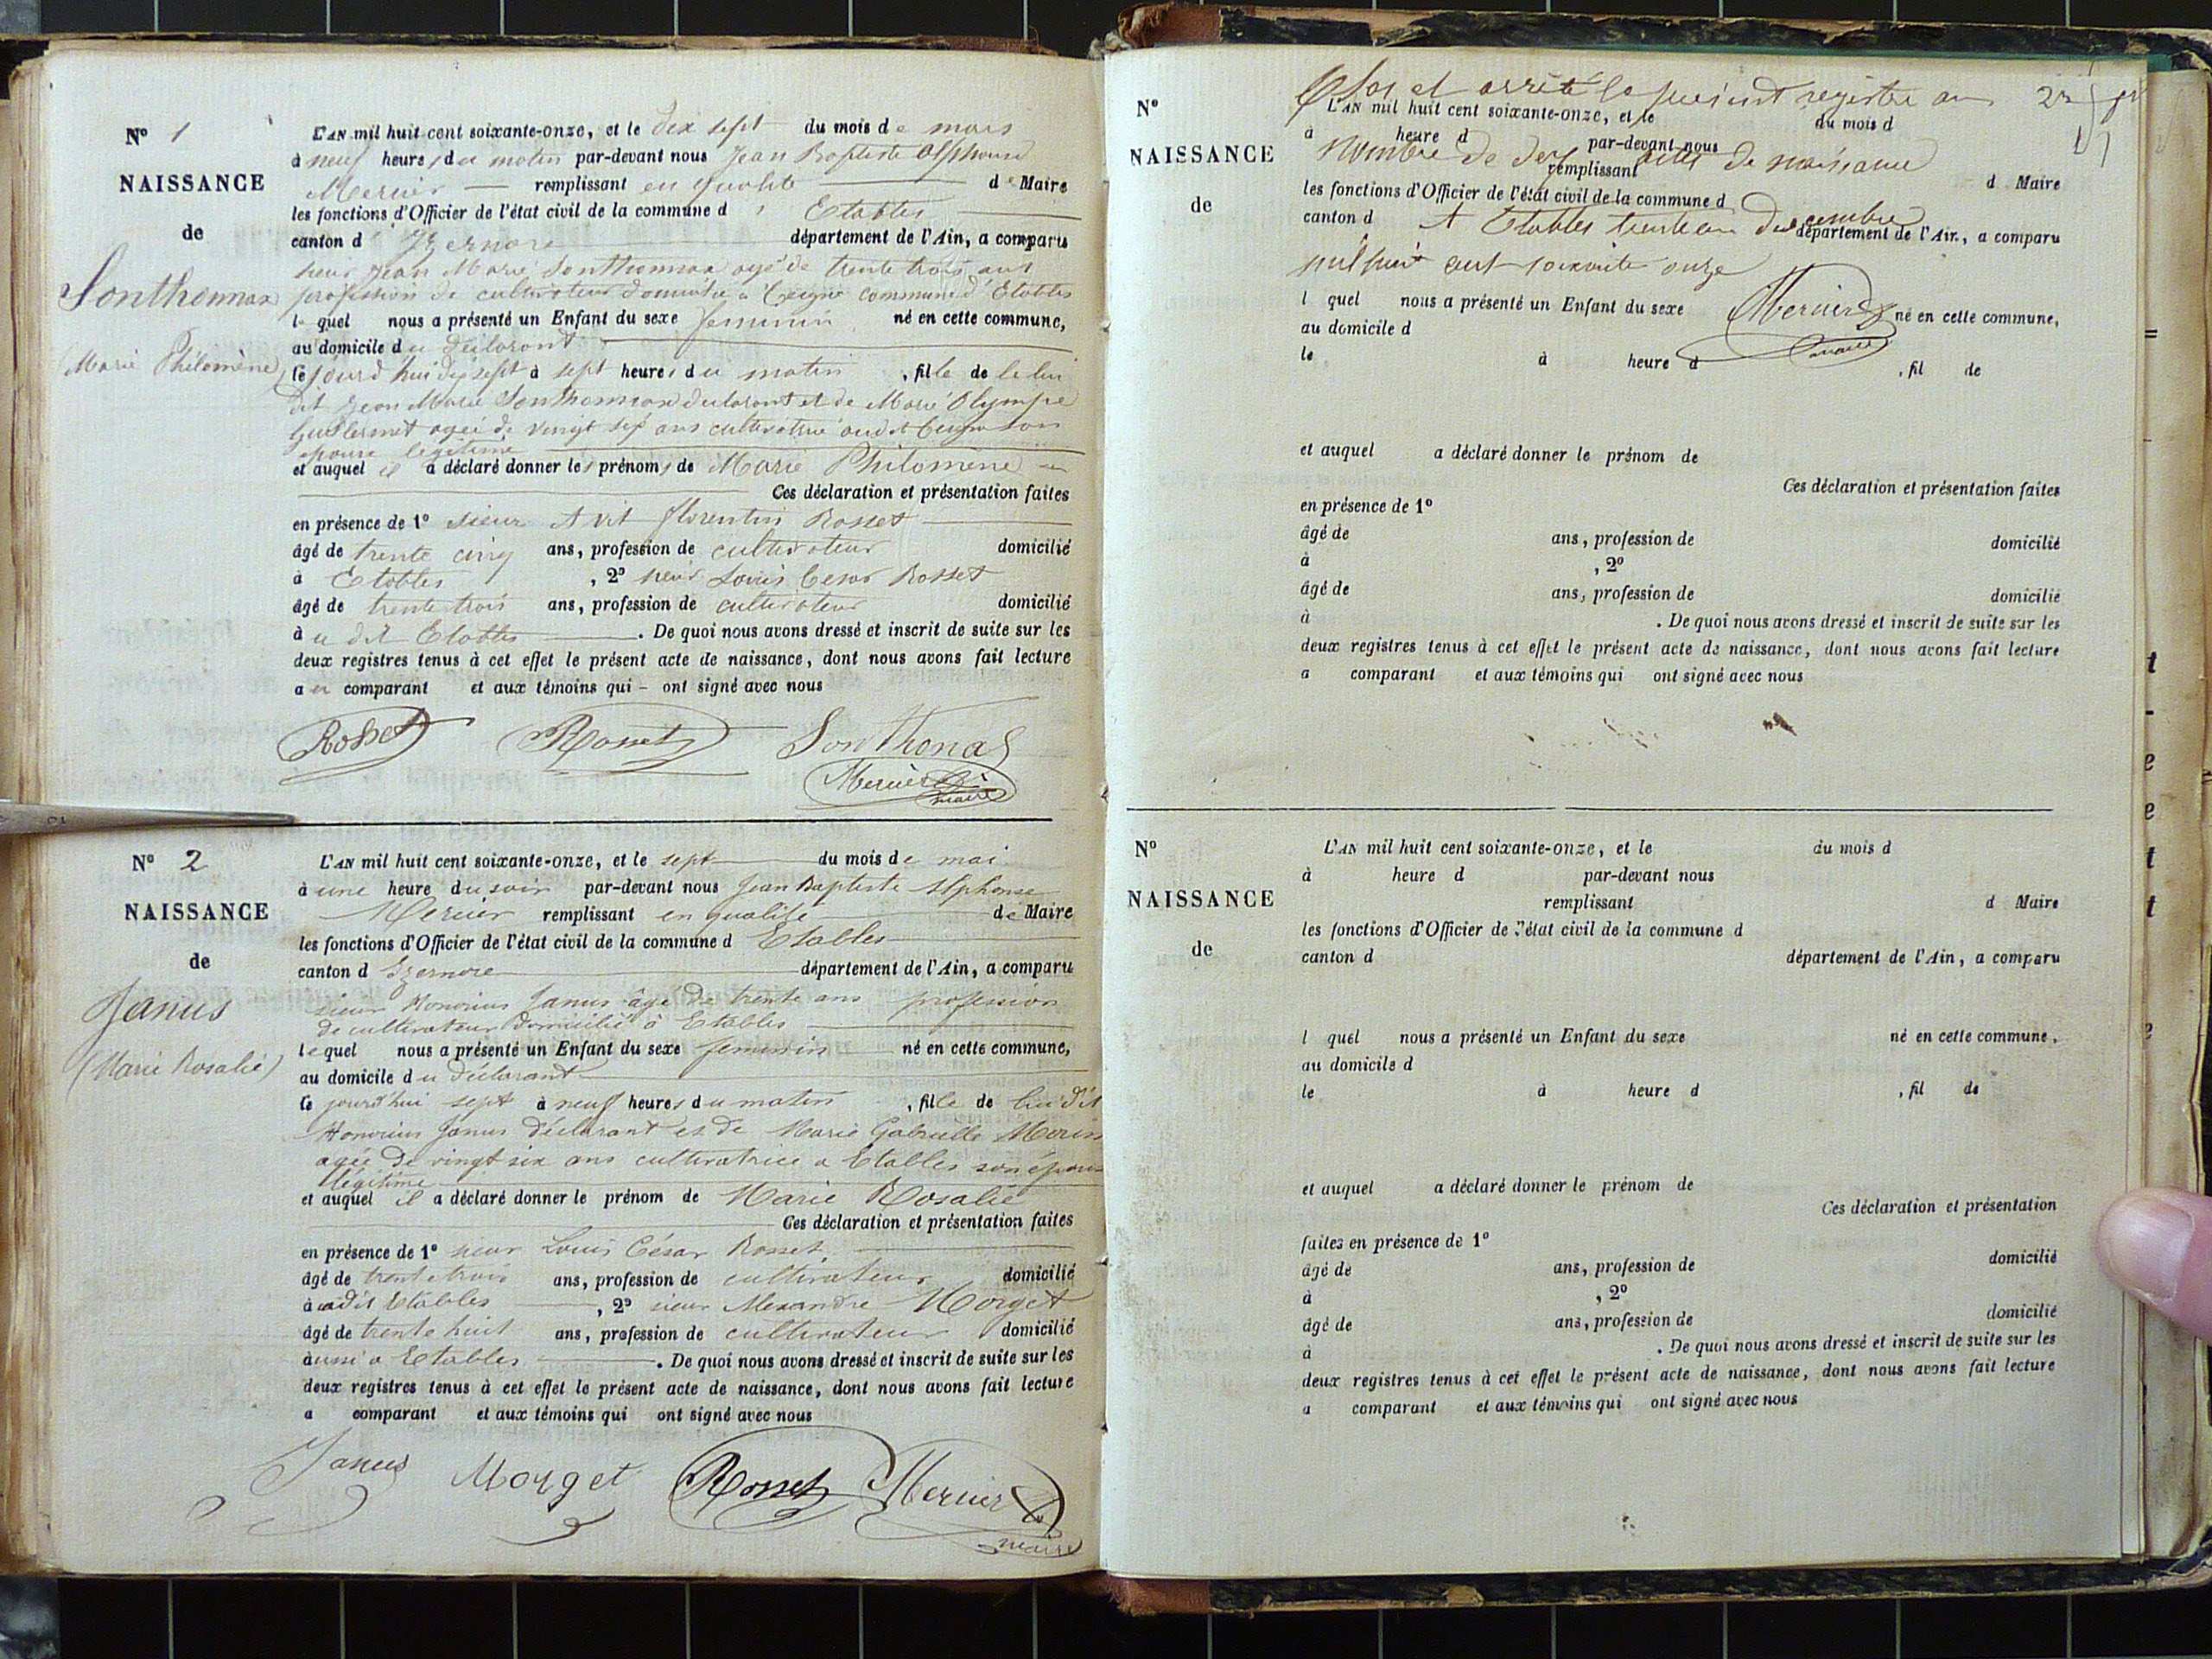 N° 1
NAISSANCE
de
Sonthonnax
Marie Philomène
L'AN mil huit cent soixante-onze, et le dix sept du mois de mars
à neuf heures du matin par-devant nous Jean Baptiste Alphonse
Mercier remplissant en qualité de Maire
les fonctions d'Officier de l'état civil de la commune d'Etables
canton d'Izernore département de l'Ain, a comparu
sieur Jean Marie Sonthonnax agé de trente trois ans
profession de cultivateur domicilié à Ceigne commune d'Etables
lequel nous a présenté un Enfant du sexe feminin né en cette commune,
au domicile du déclarant
le jourd'hui dix sept à sept heures du matin, fille de lui
dit Jean Marie Sonthonnax declarant et de Marie Olympe
agée de vingt ans cultivatrice audit Ceigne son
épouse légitime
et auquel il a déclaré donner les prénoms de Marie Philomène
Ces déclaration et présentation faites
en présence de 1° sieur Avit florentin Rosset
âgé de trente cinq ans, profession de cultivateur domicilié
à Etables, 2° sieur Louis Cesar Rosset
âgé de trente trois ans, profession de cultivateur domicilié
à u dit Etables. De quoi nous avons dressé et inscrit de suite sur les
deux registres tenus à cet effet le présent acte de naissance, dont nous avons fait lecture
au comparant et aux témoins qui – ont signé avec nous
Rosset Rosset Sonthonax
Mercier
maire
N° 2
NAISSANCE
de
Janus
(Marie Rosalie)
L'AN mil huit cent soixante-onze, et le sept du mois de mai
à une heure du soir par-devant nous Jean Baptiste Alphonse
Mercier remplissant en qualité de Maire
les fonctions d'Officier de l'état civil de la commune d Etables
canton d Izernore département de l'Ain, a comparu
sieur Honorius Janus âgé de trente ans profession
de cultivateur domicilié à Etables
lequel nous a présenté un Enfant du sexe feminin né en cette commune,
au domicile du déclarant
le jourd'hui sept à neuf heures du matin, fille de lui dit
Honorius Janus déclarant et de Marie Gabrielle
agée de vingt six ans cultivatrice a Etables son épouse
légitime
et auquel il a déclaré donner le prénom de Marie Rosalie
Ces déclaration et présentation faites
en présence de 1° sieur Louis César Rosset
âgé de trente trois ans, profession de cultivateur domicilié
à audit Etables, 2° sieur Alexandre Morget
âgé de trente huit ans, profession de cultivateur domicilié
aussi a Etables. De quoi nous avons dressé et inscrit de suite sur les
deux registres tenus à cet effet le présent acte de naissance, dont nous avons fait lecture
a comparant et aux témoins qui ont signé avec nous
Janus Morget Rosset Mercier
maire
Clos et arrété le présent registre au
N° L'AN mil huit cent soixante-onze, et le du mois d
à heure d par-devant nous
nombre de deux actes de naissance
NAISSANCE
remplissant d Maire
les fonctions d'Officier de l'état civil de la commune d
de
A Etables trente un decembre
canton d département de l'Ain, a comparu
mil huit cent soixante onze
l quel nous a présenté un Enfant du sexe né en cette commune,
Mercier
au domicile d
maire
le à heure d, fil de
et auquel a déclaré donner le prénom de
Ces déclaration et présentation faites
en présence de 1°
âgé de ans, profession de domicilié
à, 2°
âgé de ans, profession de domicilié
à. De quoi nous avons dressé et inscrit de suite sur les
deux registres tenus à cet effet le présent acte de naissance, dont nous avons fait lecture
a comparant et aux témoins qui ont signé avec nous
N°
NAISSANCE
de
L'AN mil huit cent soixante-onze, et le du mois d
à heure d par-devant nous
remplissant d Maire
les fonctions d'Officier de l'état civil de la commune d
canton d département de l'Ain, a comparu
l quel nous a présenté un Enfant du sexe né en cette commune,
au domicile d
le à heure d, fil de
et auquel a déclaré donner le prénom de
Ces déclaration et présentation
faites en présence de 1°
âgé de ans, profession de domicilié
à, 2°
âgé de ans, profession de domicilié
à. De quoi nous avons dressé et inscrit de suite sur les
deux registres tenus à cet effet le présent acte de naissance, dont nous avons fait lecture
a comparant et aux témoins qui ont signé avec nous